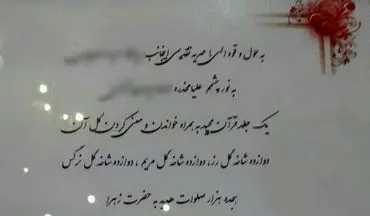 به حول و قوه الهی مهریه تقدیمی اینجانب
به نور چشم علیا مخدره
یک جلد قرآن مجید به همراه خواندن و معنی کردن کل آن
دوازده شاخه گل رز، دوازده شاخه گل مریم، دوازده شاخه گل نرگس
هجده هزار صلوات هدیه به حضرت زهرا